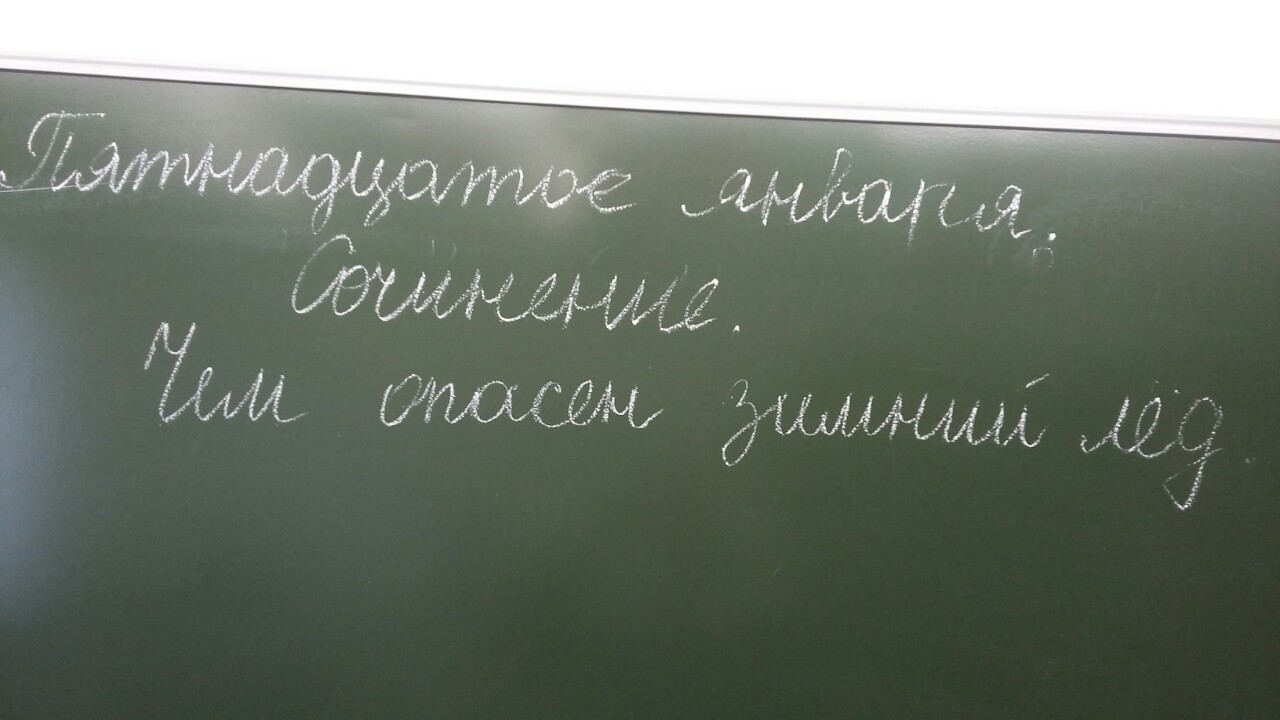 Пятнадцатое января.
Сочинение.
Чем опасен зимний лёд.